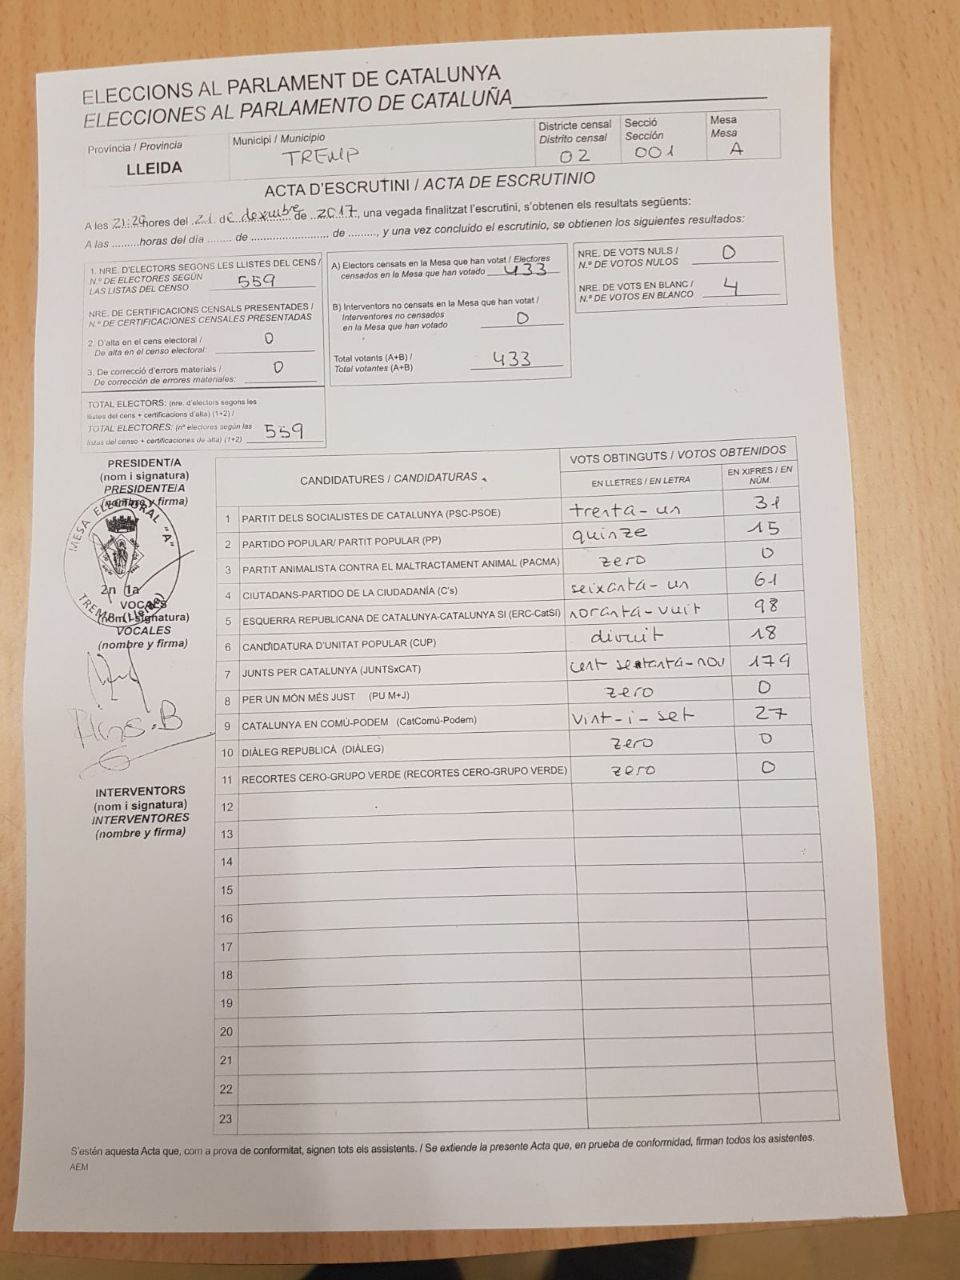 ELECCIONS AL PARLAMENT DE CATALUNYA
ELECCIONES AL PARLAMENTO DE CATALUÑA
Provincia / Provincia
LLEIDA
Municipi / Municipio
TREMP
Districte censal
Distrito censal
02
Secció
Sección
001
Mesa
Mesa
A
ACTA D'ESCRUTINI / ACTA DE ESCRUTINIO
A les 21:29 hores del 21 de desembre de 2017, una vegada finalitzat l'escrutini, s'obtenen els resultats següents:
A las .........horas del día ....... de ...................... de ........, y una vez concluido el escrutinio, se obtienen los siguientes resultados:
1. NRE. D'ELECTORS SEGONS LES LLISTES DEL CENS /
N.º DE ELECTORES SEGÚN
LAS LISTAS DEL CENSO 559
NRE. DE CERTIFICACIONS CENSALS PRESENTADES /
N.º DE CERTIFICACIONES CENSALES PRESENTADAS
2. D'alta en el cens electoral /
De alta en el censo electoral: 0
3. De correcció d'errors materials /
De corrección de errores materiales: 0
TOTAL ELECTORS: (nre. d'electors segons les
llistes del cens + certificacions d'alta) (1+2) /
TOTAL ELECTORES: (nº electores según las
listas del censo + certificaciones de alta) (1+2) 559
A) Electors censats en la Mesa que han votat / Electores
censados en la Mesa que han votado 433
B) Interventors no censats en la Mesa que han votat /
Interventores no censados
en la Mesa que han votado 0
Total votants (A+B) /
Total votantes (A+B) 433
NRE. DE VOTS NULS /
N.º DE VOTOS NULOS 0
NRE. DE VOTS EN BLANC /
N.º DE VOTOS EN BLANCO 4
PRESIDENT/A
(nom i signatura)
PRESIDENTE/A
(nombre y firma)
MESA ELECTORAL "A"
TREMP (Lleida)
2n 1a
VOCALS
(nom i signatura)
VOCALES
(nombre y firma)
INTERVENTORS
(nom i signatura)
INTERVENTORES
(nombre y firma)
CANDIDATURES / CANDIDATURAS
VOTS OBTINGUTS / VOTOS OBTENIDOS
EN LLETRES / EN LETRA
EN XIFRES / EN NÚM.
1 PARTIT DELS SOCIALISTES DE CATALUNYA (PSC-PSOE) trenta-un 31
2 PARTIDO POPULAR/ PARTIT POPULAR (PP) quinze 15
3 PARTIT ANIMALISTA CONTRA EL MALTRACTAMENT ANIMAL (PACMA) zero 0
4 CIUTADANS-PARTIDO DE LA CIUDADANÍA (C's) seixanta-un 61
5 ESQUERRA REPUBLICANA DE CATALUNYA-CATALUNYA SI (ERC-CatSí) noranta-vuit 98
6 CANDIDATURA D'UNITAT POPULAR (CUP) divuit 18
7 JUNTS PER CATALUNYA (JUNTSxCAT) cent setanta-nou 179
8 PER UN MÓN MÉS JUST (PU M+J) zero 0
9 CATALUNYA EN COMÚ-PODEM (CatComú-Podem) vint-i-set 27
10 DIÀLEG REPUBLICÀ (DIÀLEG) zero 0
11 RECORTES CERO-GRUPO VERDE (RECORTES CERO-GRUPO VERDE) zero 0
12
13
14
15
16
17
18
19
20
21
22
23
S'estén aquesta Acta que, com a prova de conformitat, signen tots els assistents. / Se extiende la presente Acta que, en prueba de conformidad, firman todos los asistentes.
AEM